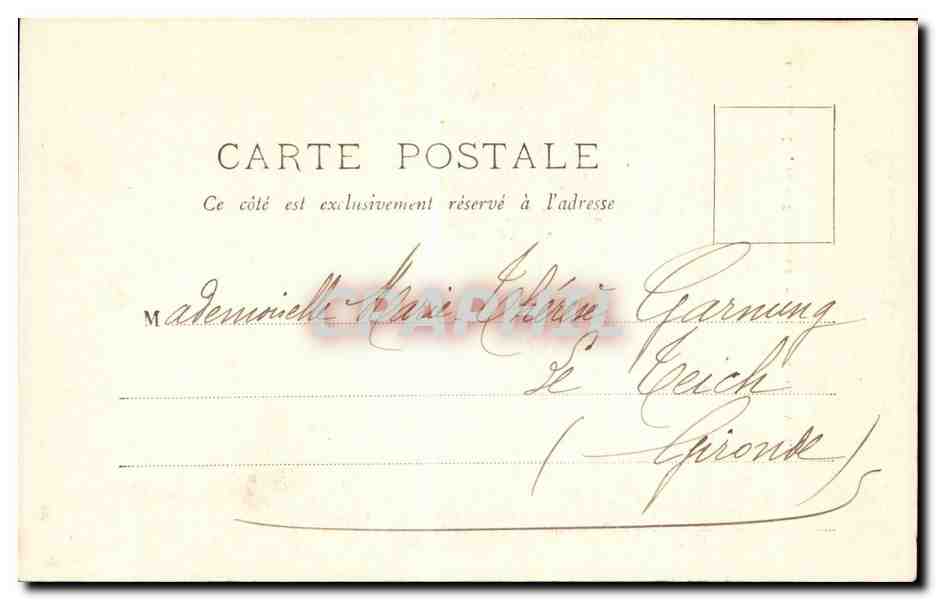 CARTE POSTALE
Ce côté est exclusivement réservé à l'adresse
Mademoiselle Marie Thérèse Garnung
Le Teich
(Gironde)